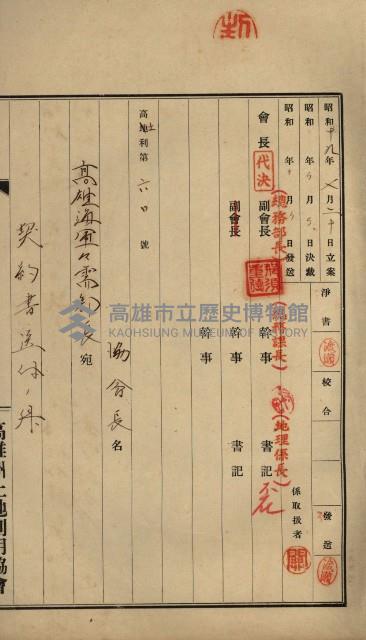 昭和十九年 月二十日立案
昭和 年 月 日決裁
昭和 年 月 日發送
淨書
校合
發送
係取扱者
會長
代決
副會長
副會長
(總務部長)
(總務課長)
(地理係長)
幹事
幹事
書記
書記
高地利第六〇號
協會長名
高雄海軍々需部長宛
契約書送付ノ件
高雄州土地利用協會
高雄市立歷史博物館
KAOHSIUNG MUSEUM OF HISTORY